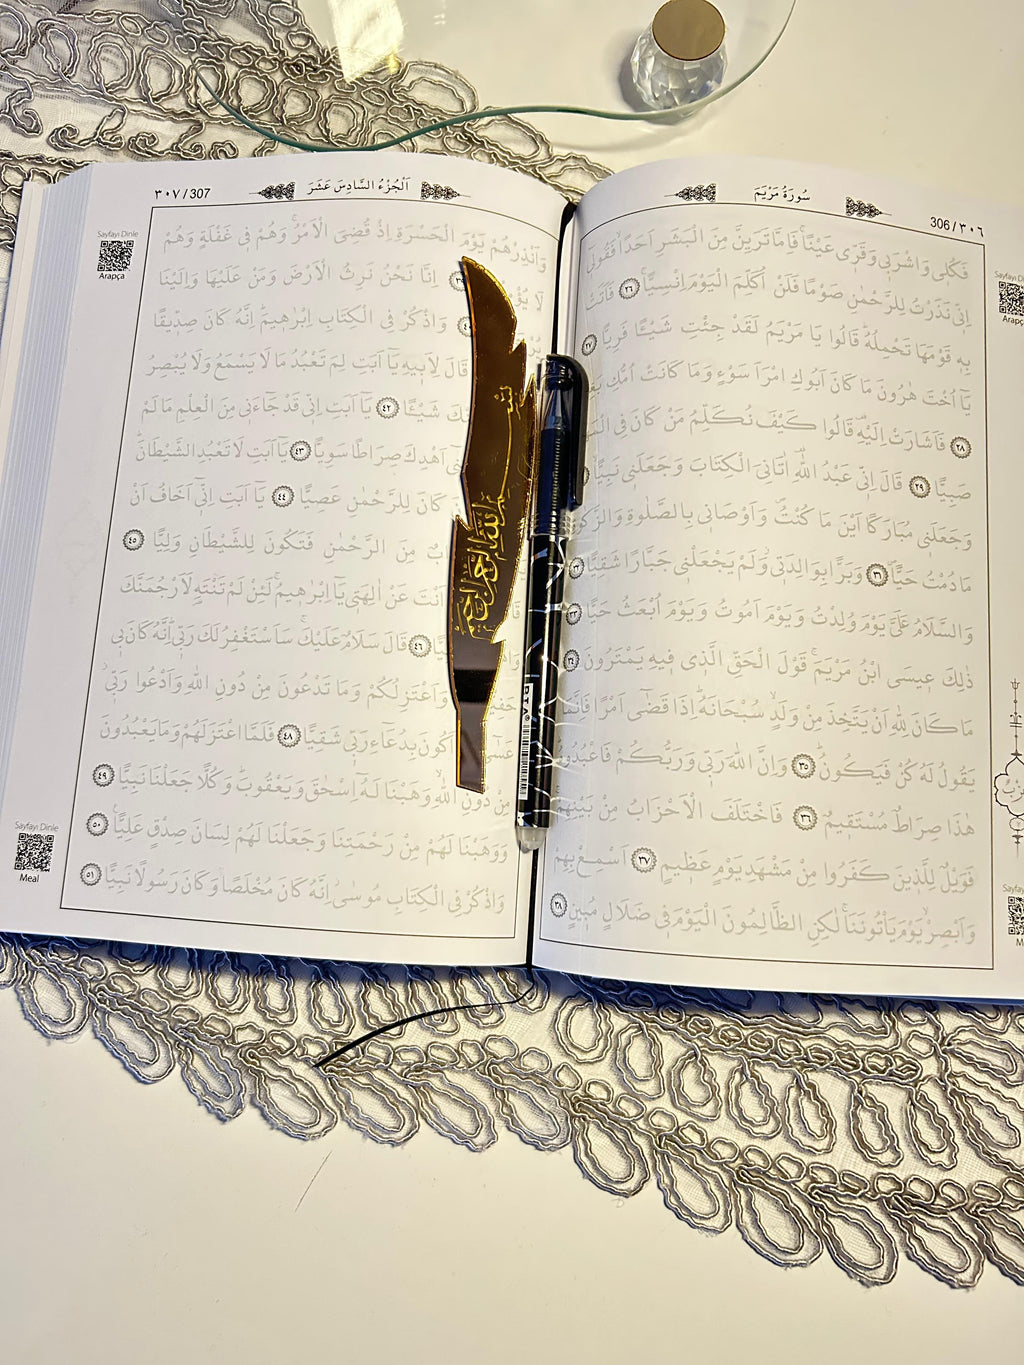 سُورَةُ مَرْيَمَ
306 / ٣٠٦
فَكُلِى وَاشْرَبِى وَقَرِّى عَيْنًاۚ فَاِمَّا تَرَيِنَّ مِنَ الْبَشَرِ اَحَدًاۙ فَقُولِىٓ
اِنِّى نَذَرْتُ لِلرَّحْمٰنِ صَوْمًا فَلَنْ اُكَلِّمَ الْيَوْمَ اِنْسِيًّاۚ ٢٦ فَاَتَتْ
بِهِ قَوْمَهَا تَحْمِلُهُۜ قَالُوا يَا مَرْيَمُ لَقَدْ جِئْتِ شَيْـًٔا فَرِيًّا ٢٧
يَٓا اُخْتَ هٰرُونَ مَا كَانَ اَبُوكِ امْرَاَ سَوْءٍ وَمَا كَانَتْ اُمُّكِ
٢٨ فَاَشَارَتْ اِلَيْهِۜ قَالُوا كَيْفَ نُكَلِّمُ مَنْ كَانَ فِى
صَبِيًّا ٢٩ قَالَ اِنِّى عَبْدُ اللّٰهِۜ اٰتَانِىَ الْكِتَابَ وَجَعَلَنِى نَبِيًّاۙ
وَجَعَلَنِى مُبَارَكًا اَيْنَ مَا كُنْتُۖ وَاَوْصَانِى بِالصَّلٰوةِ
مَا دُمْتُ حَيًّاۖ ٣١ وَبَرًّا بِوَالِدَتِىۘ وَلَمْ يَجْعَلْنِى جَبَّارًا شَقِيًّا ٣٢
وَالسَّلَامُ عَلَىَّ يَوْمَ وُلِدْتُ وَيَوْمَ اَمُوتُ وَيَوْمَ اُبْعَثُ حَيًّا ٣٣
ذٰلِكَ عِيسَى ابْنُ مَرْيَمَۚ قَوْلَ الْحَقِّ الَّذِى فِيهِ يَمْتَرُونَ ٣٤
مَا كَانَ لِلّٰهِ اَنْ يَتَّخِذَ مِنْ وَلَدٍۙ سُبْحَانَهُۜ اِذَا قَضٰٓى اَمْرًا فَاِنَّمَا
يَقُولُ لَهُ كُنْ فَيَكُونُۜ ٣٥ وَاِنَّ اللّٰهَ رَبِّى وَرَبُّكُمْ فَاعْبُدُوهُۜ
هٰذَا صِرَاطٌ مُسْتَقِيمٌ ٣٦ فَاخْتَلَفَ الْاَحْزَابُ مِنْ بَيْنِهِمْۚ
فَوَيْلٌ لِلَّذِينَ كَفَرُوا مِنْ مَشْهَدِ يَوْمٍ عَظِيمٍ ٣٧ اَسْمِعْ بِهِمْ
وَاَبْصِرْۙ يَوْمَ يَأْتُونَنَاۚ لٰكِنِ الظَّالِمُونَ الْيَوْمَ فِى ضَلَالٍ مُبِينٍ ٣٨
Sayfayı
٣٠٧ / 307
اَلْجُزْءُ السَّادِسَ عَشَرَ
Sayfayı Dinle
Arapça
وَاَنْذِرْهُمْ يَوْمَ الْحَسْرَةِ اِذْ قُضِىَ الْاَمْرُۚ وَهُمْ فِى غَفْلَةٍ وَهُمْ
لَا اِنَّا نَحْنُ نَرِثُ الْاَرْضَ وَمَنْ عَلَيْهَا وَاِلَيْنَا
وَاذْكُرْ فِى الْكِتَابِ اِبْرٰهِيمَۜ اِنَّهُ كَانَ صِدِّيقًا
قَالَ لِاَبِيهِ يَٓا اَبَتِ لِمَ تَعْبُدُ مَا لَا يَسْمَعُ وَلَا يُبْصِرُ
شَيْـًٔا ٤٢ يَٓا اَبَتِ اِنِّى قَدْ جَٓاءَنِى مِنَ الْعِلْمِ مَا لَمْ
اَهْدِكَ صِرَاطًا سَوِيًّا ٤٣ يَٓا اَبَتِ لَا تَعْبُدِ الشَّيْطَانَۜ
كَانَ لِلرَّحْمٰنِ عَصِيًّا ٤٤ يَٓا اَبَتِ اِنِّٓى اَخَافُ اَنْ
مِنَ الرَّحْمٰنِ فَتَكُونَ لِلشَّيْطَانِ وَلِيًّا ٤٥
اَنْتَ عَنْ اٰلِهَتِى يَٓا اِبْرٰهِيمُۚ لَئِنْ لَمْ تَنْتَهِ لَاَرْجُمَنَّكَ
٤٦ قَالَ سَلَامٌ عَلَيْكَۚ سَاَسْتَغْفِرُ لَكَ رَبِّىۜ اِنَّهُ كَانَ بِى
وَاَعْتَزِلُكُمْ وَمَا تَدْعُونَ مِنْ دُونِ اللّٰهِ وَاَدْعُوا رَبِّىۘ
عَسٰٓى اَكُونَ بِدُعَٓاءِ رَبِّى شَقِيًّا ٤٨ فَلَمَّا اعْتَزَلَهُمْ وَمَا يَعْبُدُونَ
مِنْ دُونِ اللّٰهِۙ وَهَبْنَا لَهُٓ اِسْحٰقَ وَيَعْقُوبَۜ وَكُلًّا جَعَلْنَا نَبِيًّا ٤٩
وَوَهَبْنَا لَهُمْ مِنْ رَحْمَتِنَا وَجَعَلْنَا لَهُمْ لِسَانَ صِدْقٍ عَلِيًّا۟ ٥٠
وَاذْكُرْ فِى الْكِتَابِ مُوسٰىۘ اِنَّهُ كَانَ مُخْلَصًا وَكَانَ رَسُولًا نَبِيًّا ٥١
Sayfayı Dinle
Meal
بسم الله الرحمن الرحيم